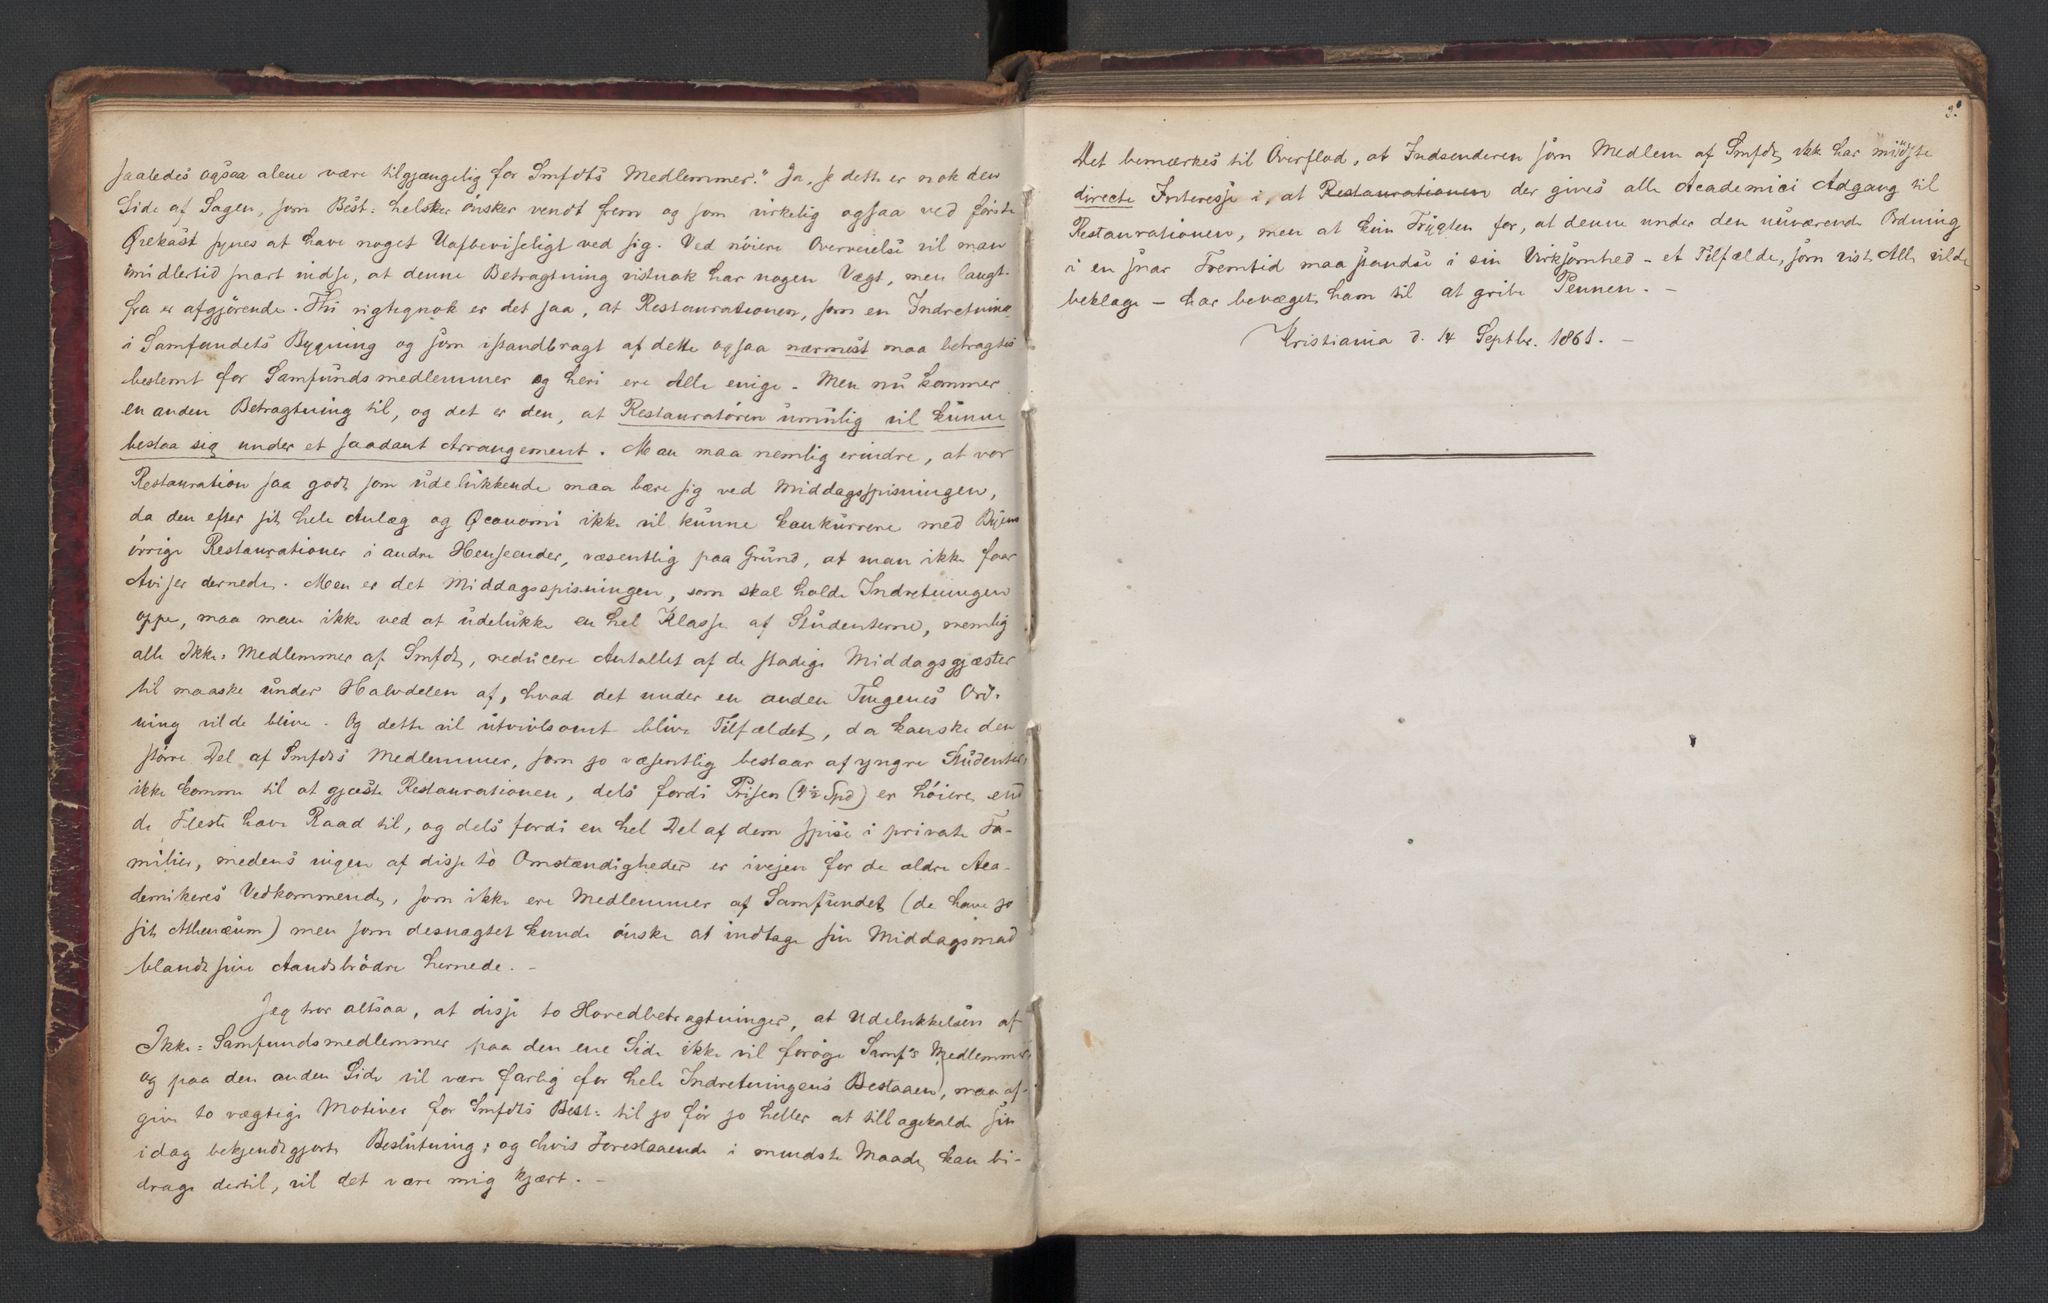 saaledes ogsaa alene være tilgjængelig for Smfdts Medlemmer." Ja, se dette er nok den
Side af Sagen, som Best: helsker ønsker vendt frem og som virkelig ogsaa ved første
Øiekast synes at have noget Uafbeviseligt ved sig. Ved nöiere Overveielse vil man
imidlertid snart indse, at denne Betragtning vistnok har nogen Vægt, men langt-
fra er afgjörende. Thi rigtignok er det saa, at Restaurationen, som en Indretning
i Samfundets Bygning og som istandbragt af dette ogsaa nærmest maa betragtes
bestemt for Samfundsmedlemmer og heri ere Alle enige. Men nu kommer
en anden Betragtning til, og det er den, at Restauratören umulig vil kunne
bestaa sig under et saadant Arrangement. Man maa nemlig erindre, at vor
Restauration saa godt som udelukkende maa bære sig ved Middagsspisningen,
da den efter sit hele Anlæg og Oeconomi ikke vil kunne konkurrere med Byens
övrige Restaurationer i andre Henseender, væsentlig paa Grund, at man ikke faar
Aviser dernede. Men er det Middagsspisningen, som skal holde Indretningen
oppe, maa man ikke ved at udelukke en hel Klasse af Studenterne, nemlig
alle Ikke-Medlemmer af Smfdt, reducere Antallet af de stadige Middagsgjæster
til maaske under Halvdelen af, hvad det under en anden Tingenes Ord-
ning vilde blive. Og dette vil utvivlsomt blive Tilfældet, da kanske den
större Del af Smfdts Medlemmer, som jo væsentlig bestaar af yngre Studenter,
ikke komme til at gjæste Restaurationen, dels fordi Prisen (4½ Spd) er höiere, end
de Fleste have Raad til, og dels fordi en hel Del af dem spise i private Fa-
milier, medens ingen af disse to Omstændigheder er ivejen for de ældre Aca-
demikeres Vedkommende, som ikke ere Medlemmer af Samfundet (de have jo
sit Athenæum) men som desuagtet kunde önske at indtage sin Middagsmad
blandt sine Aandsbrödre hernede. –
Jeg tror altsaa, at disse to Hovedbetragtninger, at Udelukkelsen af
Ikke-Samfundsmedlemmer paa den ene Side ikke vil foröge Smf's Medlemmer
og paa den anden Side vil være farlig for hele Indretningens Bestaaen, maa af-
give to vægtige Motiver for Smfdts Best: til jo för jo heller at tilbagekalde sin
idag bekjendtgjorte Beslutning; og hvis Forestaaende i mindste Maade kan bi-
drage dertil, vil det være mig kjært. –
3.
Det bemærkes til Overflod, at Indsenderen som Medlem af Smfdt ikke har mindste
directe Interesse i, at Restaurationen der gives alle Academici Adgang til
Restaurationen, men at kun Frygten for, at denne under den nuværende Ordning
i en snar Fremtid maa standse i sin Virksomhed – et Tilfælde, som vist Alle vilde
beklage – har bevæget ham til at gribe Pennen. –
Kristiania d. 14 Septbr. 1861. –